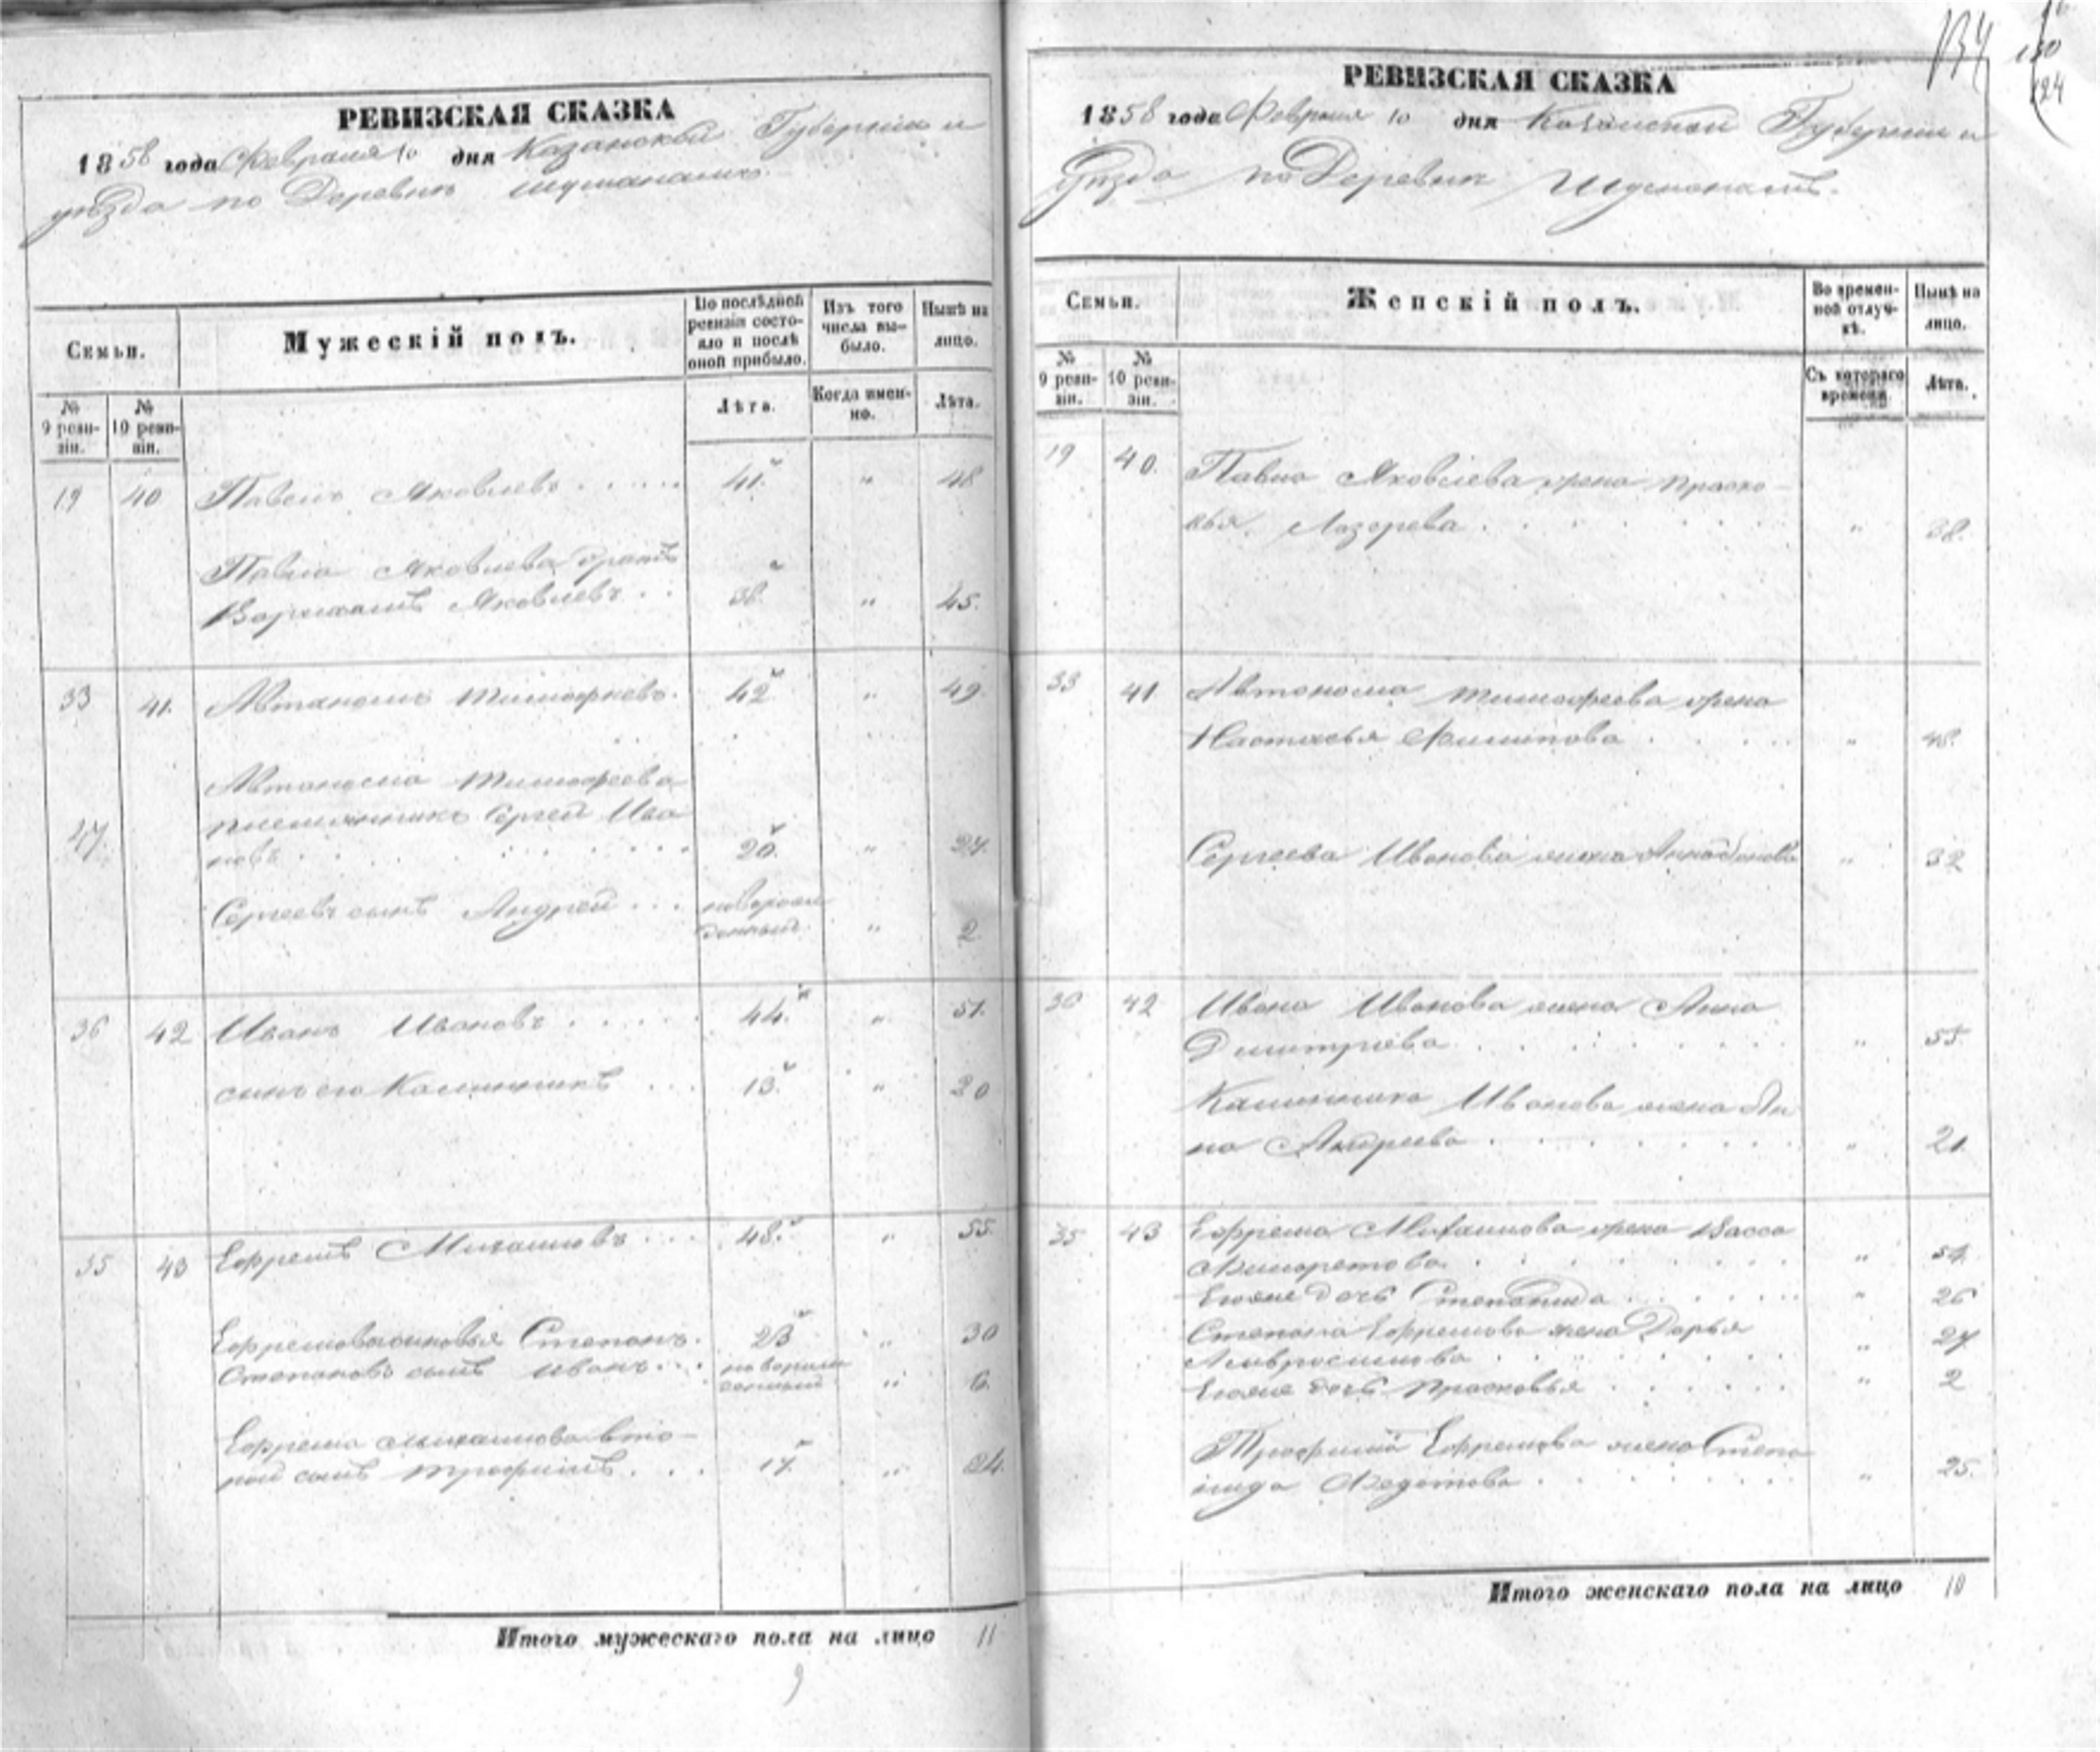 РЕВИЗСКАЯ СКАЗКА
1858 года Февраля 10 дня Казанской Губернии и
уѣзда по Деревнѣ
Семьи.
Мужескій полъ.
По послѣдней ревизіи состо-
яло и послѣ
оной прибыло.
Изъ того
числа вы-
было.
Нынѣ на
лицо.
№
9 реви-
зіи.
№
10 реви-
зіи.
Лѣта.
Когда имен-
но.
Лѣта.
19 40 Павелъ Яковлевъ 41 " 48
Павла Яковлева братъ
Яковлевъ 38 " 45.
33 41. Автаномъ Тимофѣевъ. 42 " 49.
Автанома Тимофеева
27. племянникъ Сергей Ива
новъ 20. " 27.
Сергеевъ сынъ Андрей новорож
денный " 2.
36 42 Иванъ Ивановъ 44. " 51.
сынъ его Калинникъ 13. " 20
35 43 Ефремъ Михаиловъ 48. " 55.
Ефремова сыновья Степанъ. 23 " 30
Степановъ сынъ Иванъ новорож
денный " 6.
Ефрема Михаилова вто-
рой сынъ Трофимъ 17. " 24.
Итого мужескаго пола на лицо 11
9
134
124
РЕВИЗСКАЯ СКАЗКА
1858 года Февраля 10 дня Казанской Губернии и
Уѣзда по Деревни
Семьи.
Женскій полъ.
Во времен-
ной отлуч-
кѣ.
Нынѣ на
лицо.
№
9 реви-
зіи.
№
10 реви-
зіи.
Съ котораго
времени.
Лѣта.
19 40. Павла Яковлева жена Праско-
вья Лазорева " 38.
33 41 Автонома Тимофеева жена
Настасья Филипова " 48.
Сергеева Иванова жена " 32
36 42 Ивана Иванова жена Анна
Дмитриева " 55
Калинника Иванова жена Ан
на Андреева " 21.
35 43 Ефрема Михаилова жена Васса
" 54.
Ево же дочь Степанида " 26
Степана Ефремова жена Дарья
Амвросимова " 27
Ево же дочь Прасковья " 2
Трофима Ефремова жена Степа
нида Федотова " 25.
Итого женскаго пола на лицо 10